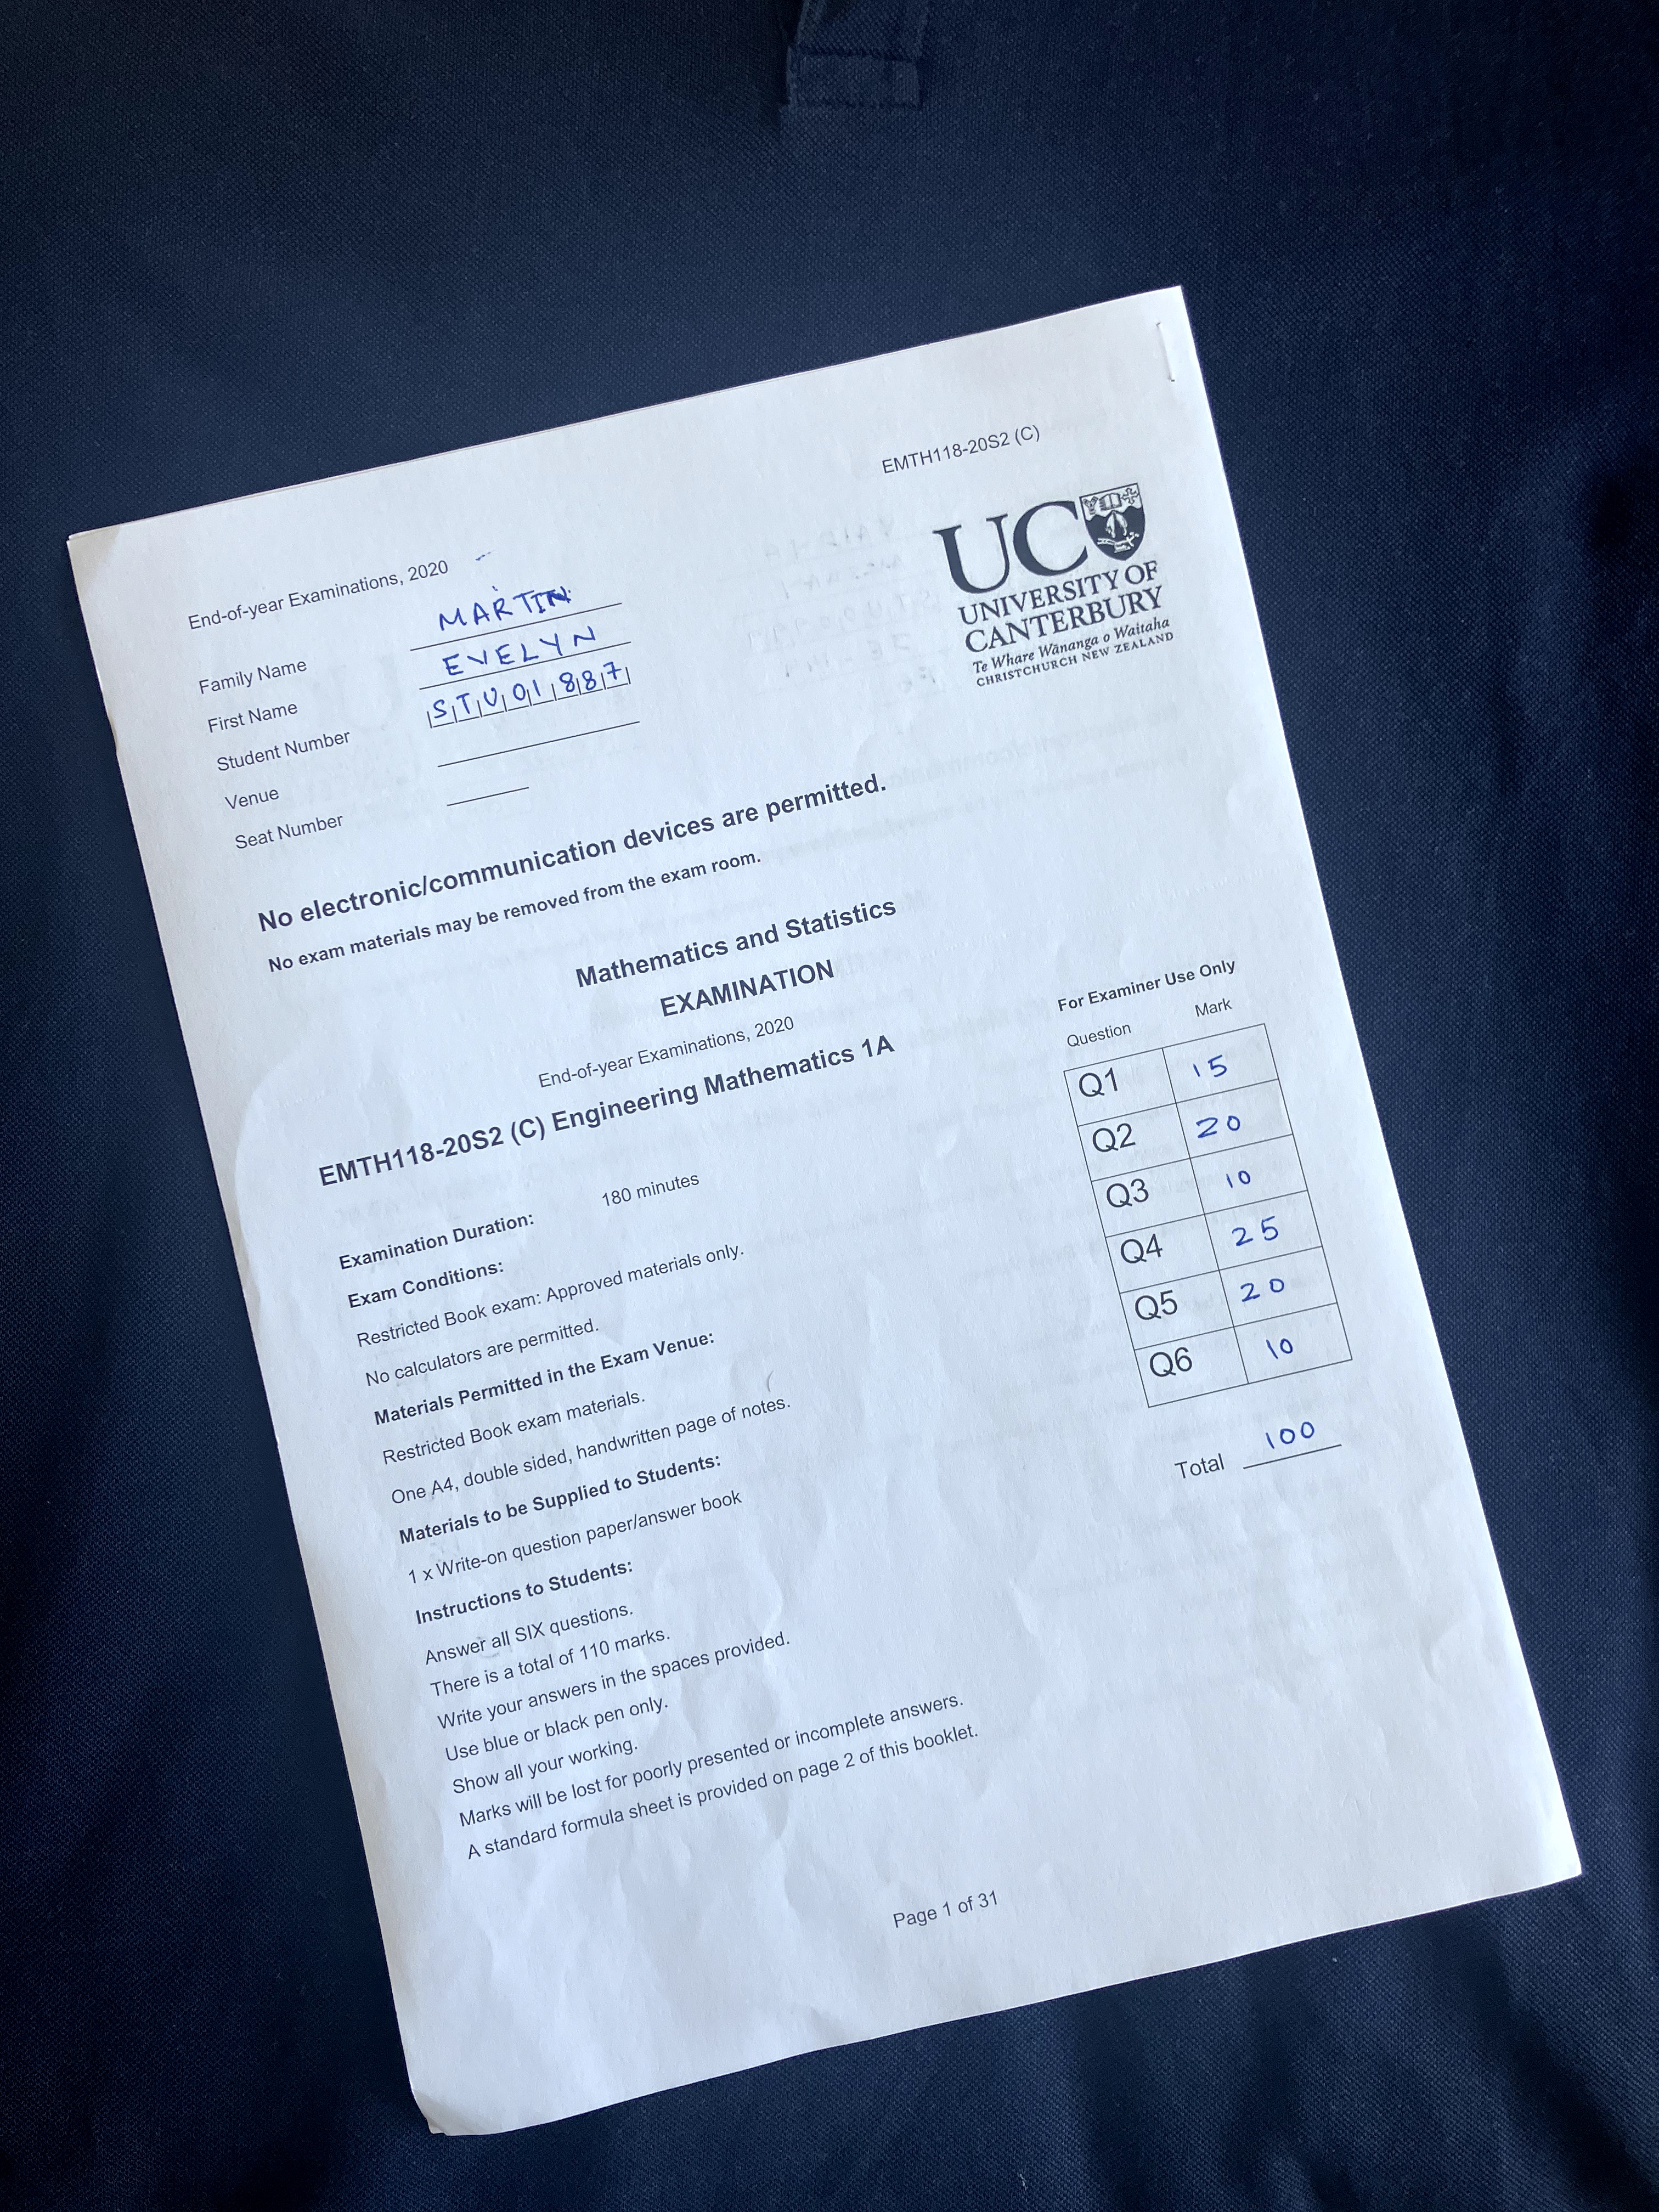 EMTH118-20S2 (C)
UC
UNIVERSITY OF
CANTERBURY
Te Whare Wānanga o Waitaha
CHRISTCHURCH NEW ZEALAND
End-of-year Examinations, 2020
Family Name MARTIN
First Name EVELYN
Student Number STU01887
Venue
Seat Number
No electronic/communication devices are permitted.
No exam materials may be removed from the exam room.
Mathematics and Statistics
EXAMINATION
End-of-year Examinations, 2020
EMTH118-20S2 (C) Engineering Mathematics 1A
For Examiner Use Only
Question Mark
Q1 15
Q2 20
Q3 10
Q4 25
Q5 20
Q6 10
Total 100
Examination Duration: 180 minutes
Exam Conditions:
Restricted Book exam: Approved materials only.
No calculators are permitted.
Materials Permitted in the Exam Venue:
Restricted Book exam materials.
One A4, double sided, handwritten page of notes.
Materials to be Supplied to Students:
1 x Write-on question paper/answer book
Instructions to Students:
Answer all SIX questions.
There is a total of 110 marks.
Write your answers in the spaces provided.
Use blue or black pen only.
Show all your working.
Marks will be lost for poorly presented or incomplete answers.
A standard formula sheet is provided on page 2 of this booklet.
Page 1 of 31